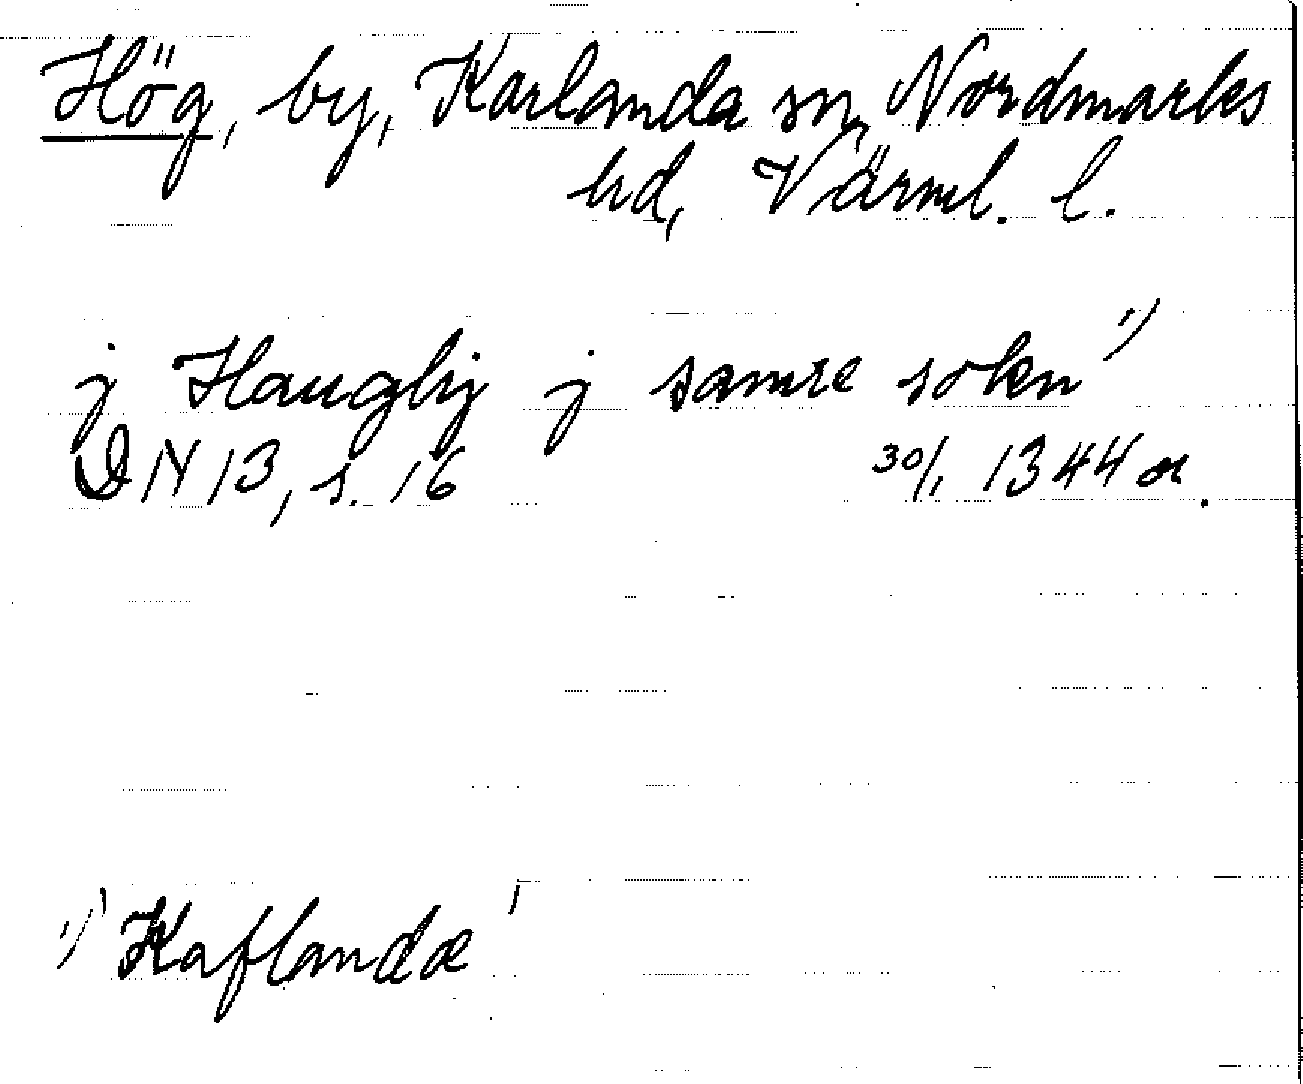 Hög, by, Karlanda sn, Nordmarks
hd, Värml. l.
j Haugby j samre sokn ¹)
DN 13, s. 16 30/1 1344 or.
¹) 'Kaflandæ'